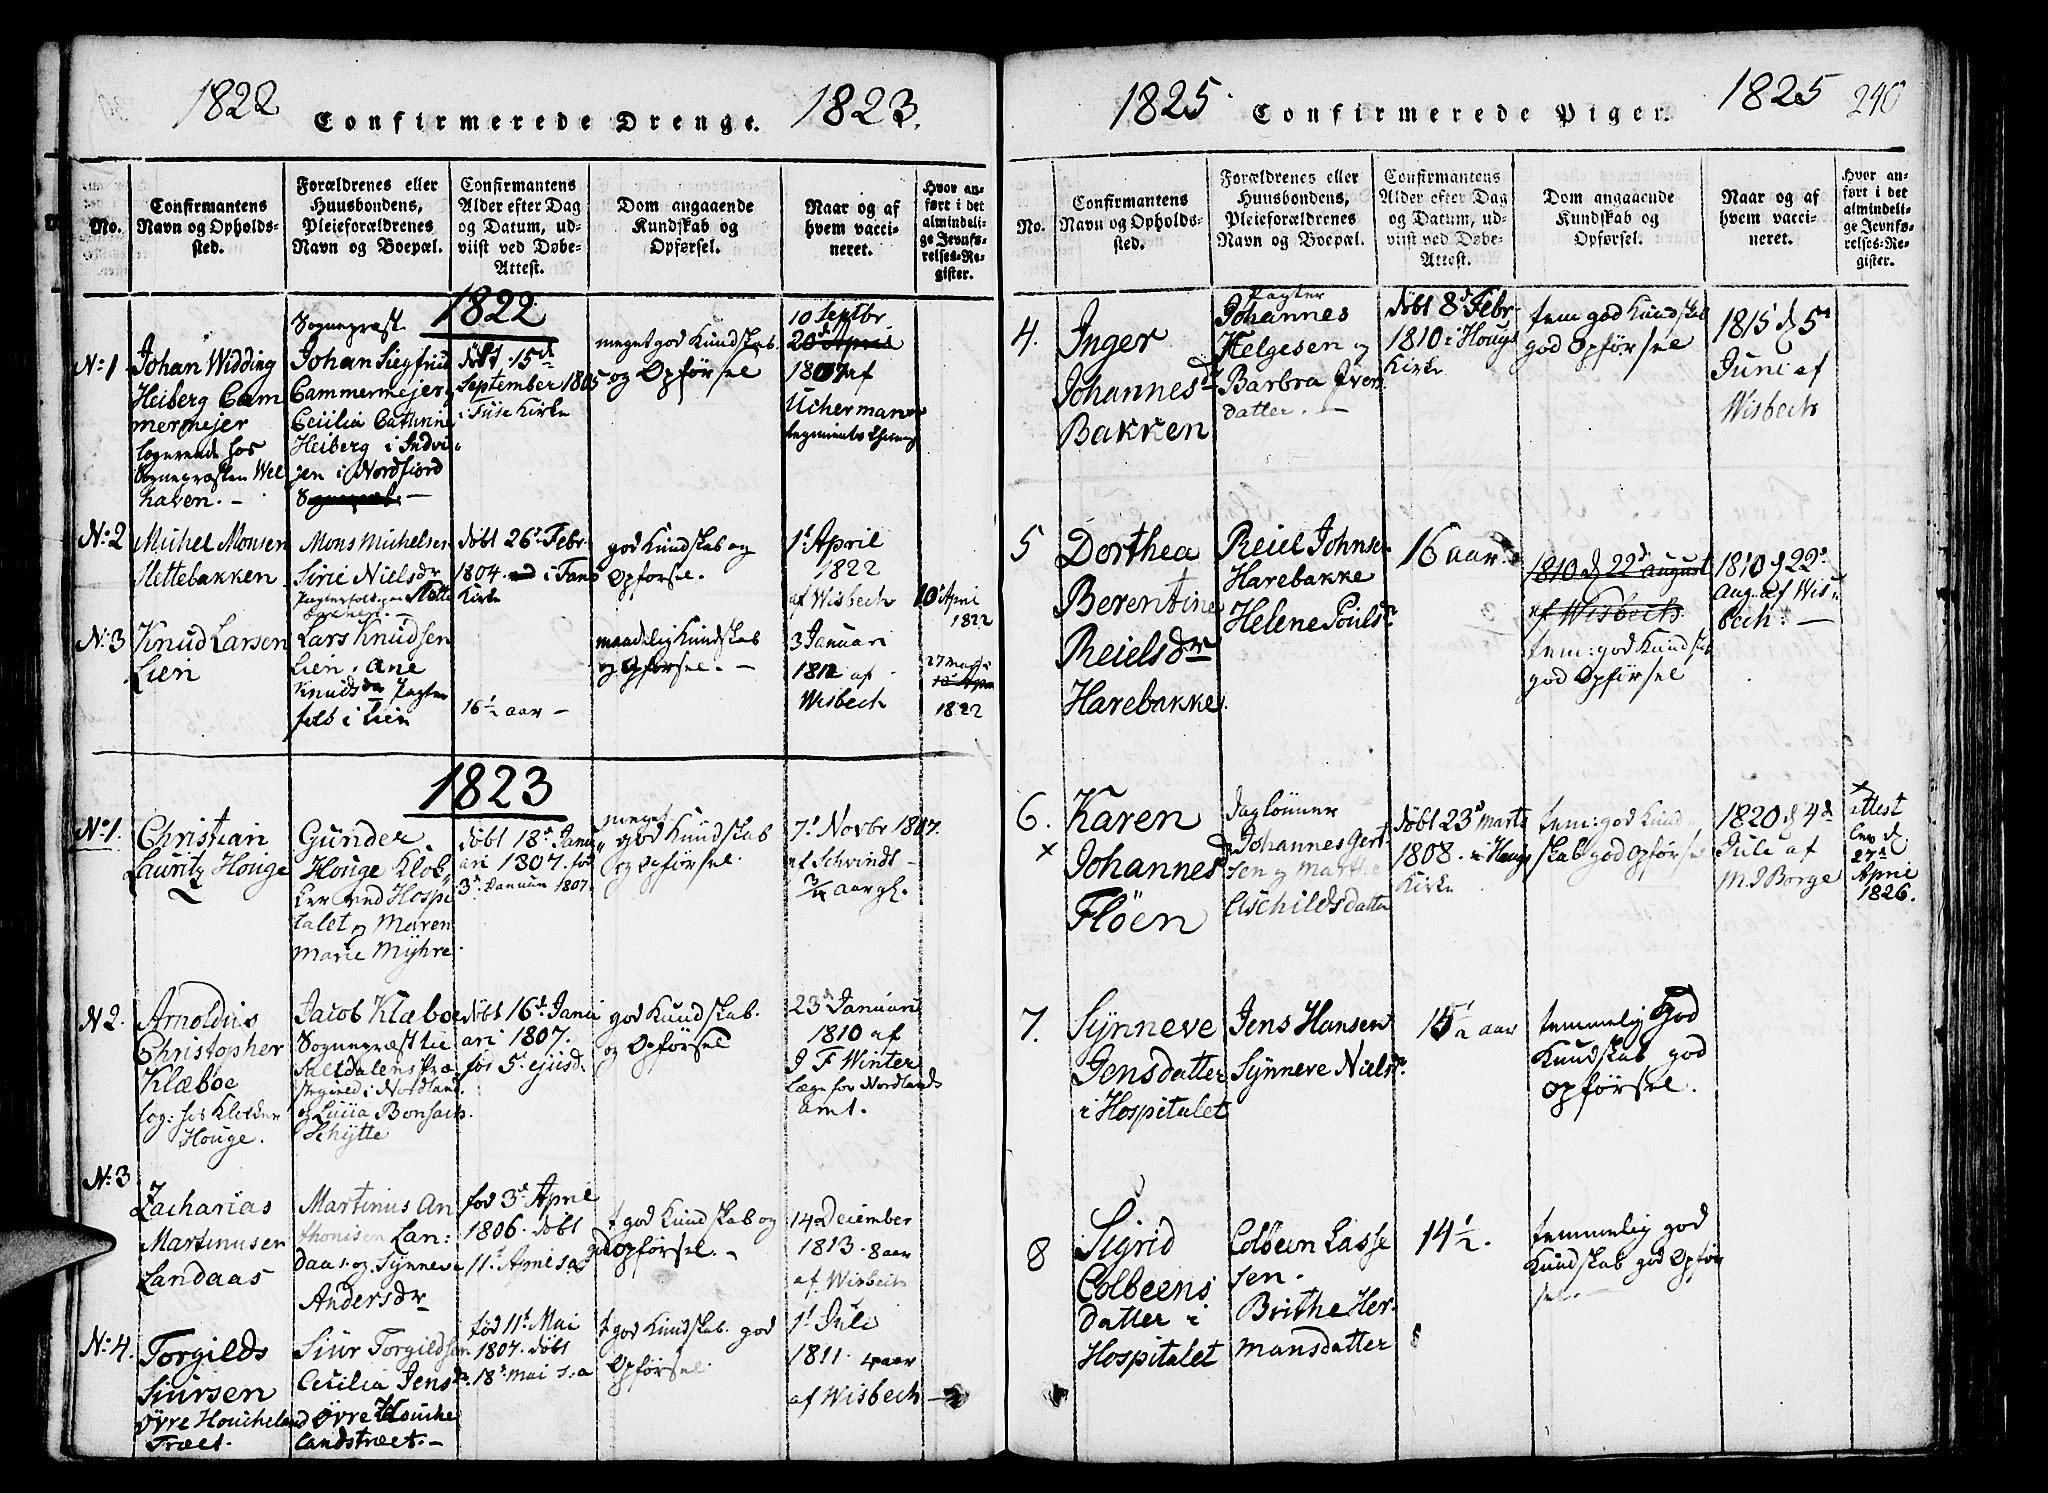 1822
Confirmerede Drenge.
1823.
No.
Confirmantens
Navn og Opholds-
sted.
Forældrenes eller
Huusbondens,
Pleieforældrenes
Navn og Boepæl.
Confirmantens
Alder efter Dag
og Datum, ud-
viist ved Døbe-
Attest.
Dom angaaende
Kundskab og
Opførsel.
Naar og af
hvem vacci-
neret.
Hvor an-
ført i det
almindeli-
ge Jevnfø-
relses-Re-
gister.
1822
No 1
Johan Widding
Heiberg Cam
mermejer
logerende hos
Sognepræsten Wel
haven. -
Sognepræst
Johan Siegfried
Cammermejer
Cecilia Cathrine
Heiberg i Indvi
gen i Nordfiord
døbt 15de
September 1805
i Kirke
meget god Kundskab
og Opførsel
10 Septbr
20de April
1807 af
Ucherman
No 2
Michel Monsen
Slettebakken
Mons Michelsen
Sirie Nielsdr
døbt 26d Febr
1804 i Fane
Kirke
god Kundskab og
Opførsel.
1d April
1822
af Wisbech
10d April
1822
No 3
Knud Larsen
Lien
Lars Knudsen
Lien. Ane
Knudsdr
i Lien
16½ aar -
maadelig Kundskab
og Opførsel. -
3 Januari
1812 af
Wisbech
27
1822
1823
No 1.
Christian
Lauritz Houge
Gunder
Houge Klok
ker ved Hospi
talet og Maren
marie Myhre
døbt 18d Janu
ari 1807. fød
3d Januari 1807.
meget
god Kundskab
og Opførsel.
7d Novbr 1807.
af Schvindt
¾ aar gl.
N 2.
Arnoldus
Christopher
Klæboe
log: hos Klokker
Houge.
Jacob Klæboe
Sognepræst til
Saltdalens Præ
stegield i Nordland
og Lucia Bonsach
Schytte
døbt 16d Janu
ari 1807.
fød 5d ejusd.
god Kundskab.
og Opførsel
23d Januari
1810 af
J F Winter
Læge for Nordlands
Amt.
No 3
Zacharias
Martinusen
Landaas
Martinus An
thonisen Lan:
daas og Synneve
Andersdr
fød 3d April
1806. døbt
11d April s.a
t god Kundskab og
god Opførsel. -
14 December
1813. 8 aar
af Wisbech
No 4.
Torgilds
Siursen
Øvre Houcheland
Træet.
Siur Torgildsen
Cecilia Jensdr
Øvre Houche
landstræet. -
fød 11d Mai
1807. døbt
18d mai s.a
t god Kundskab. god
Opførsel.
1d Juli
1811. 4 aar
af Wisbech -
1825
Confirmerede Piger.
1825
240
No.
Confirmantens
Navn og Opholds-
sted.
Forældrenes eller
Huusbondens,
Pleieforældrenes
Navn og Boepæl.
Confirmantens
Alder efter Dag
og Datum, ud-
viist ved Døbe-
Attest.
Dom angaaende
Kundskab og
Opførsel.
Naar og af
hvem vacci-
neret.
Hvor an-
ført i det
almindeli-
ge Jevnfø-
relses-Re-
gister.
4.
Inger
Johannesd
Bakken
Pagter
Johannes
Helgesen og
Barbra Iver
datter. -
døbt 8d Febr
1810 i Hougs
Kirke
tem god Kundskab
god Opførsel
1815 d 5d
Juni af
Wisbech
5
Dorthea
Berentine
Reielsdr
Harebakke
Reiel Johnse
Harebakke
Helene Poulsdr
16 aar
1810 d 22d august
af Wisbech.
tem: god Kundskab
god Opførsel
1810 d 22d
Aug. af Wis
bech. -
6.
x
Karen
Johannesd
Fløen
daglønner
Johannes Gert
sen og Marthe
Aschildsdatter
døbt 23d marts
1808. i Hougs
Kirke
tem: god Kund
skab god Opførsel
1820 d 4d
Juli af
M. J Borge
x
attest
lev d.
27d
April
1826.
7.
Synneve
Jensdatter
i Hospitalet
Jens Hansen
Synneve Nielsdr.
15½ aar
temmelig God
Kundskab god
Opførsel.
8
Sigrid
Colbeens
datter i
Hospitalet
Colbeen Lasse
sen.
Brithe Her
mansdatter
14½.
temmelig god
Kundskab god Opfør
sel. -